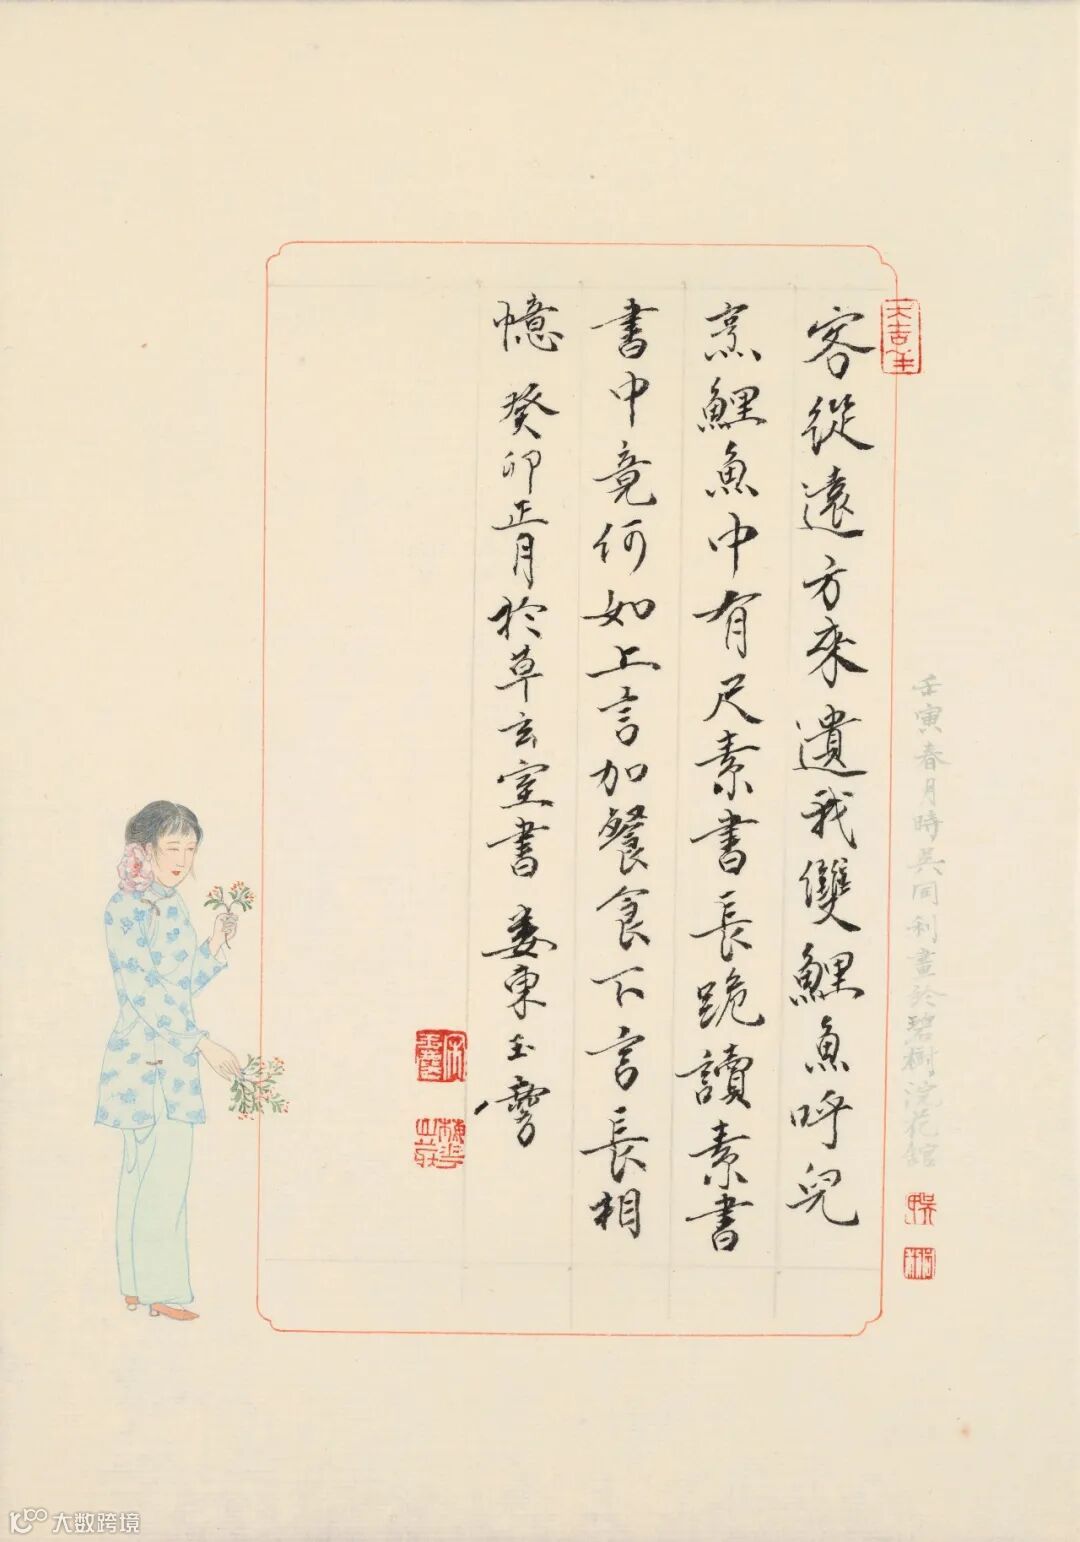 大吉羊
客從遠方來遺我雙鯉魚呼兒
烹鯉魚中有尺素書長跪讀素書
書中竟何如上言加餐食下言長相
憶 癸卯正月於草玄室書 婁東玉
壬寅春月時吳同利畫於碧樹浣花館
梅花山莊
大数跨境